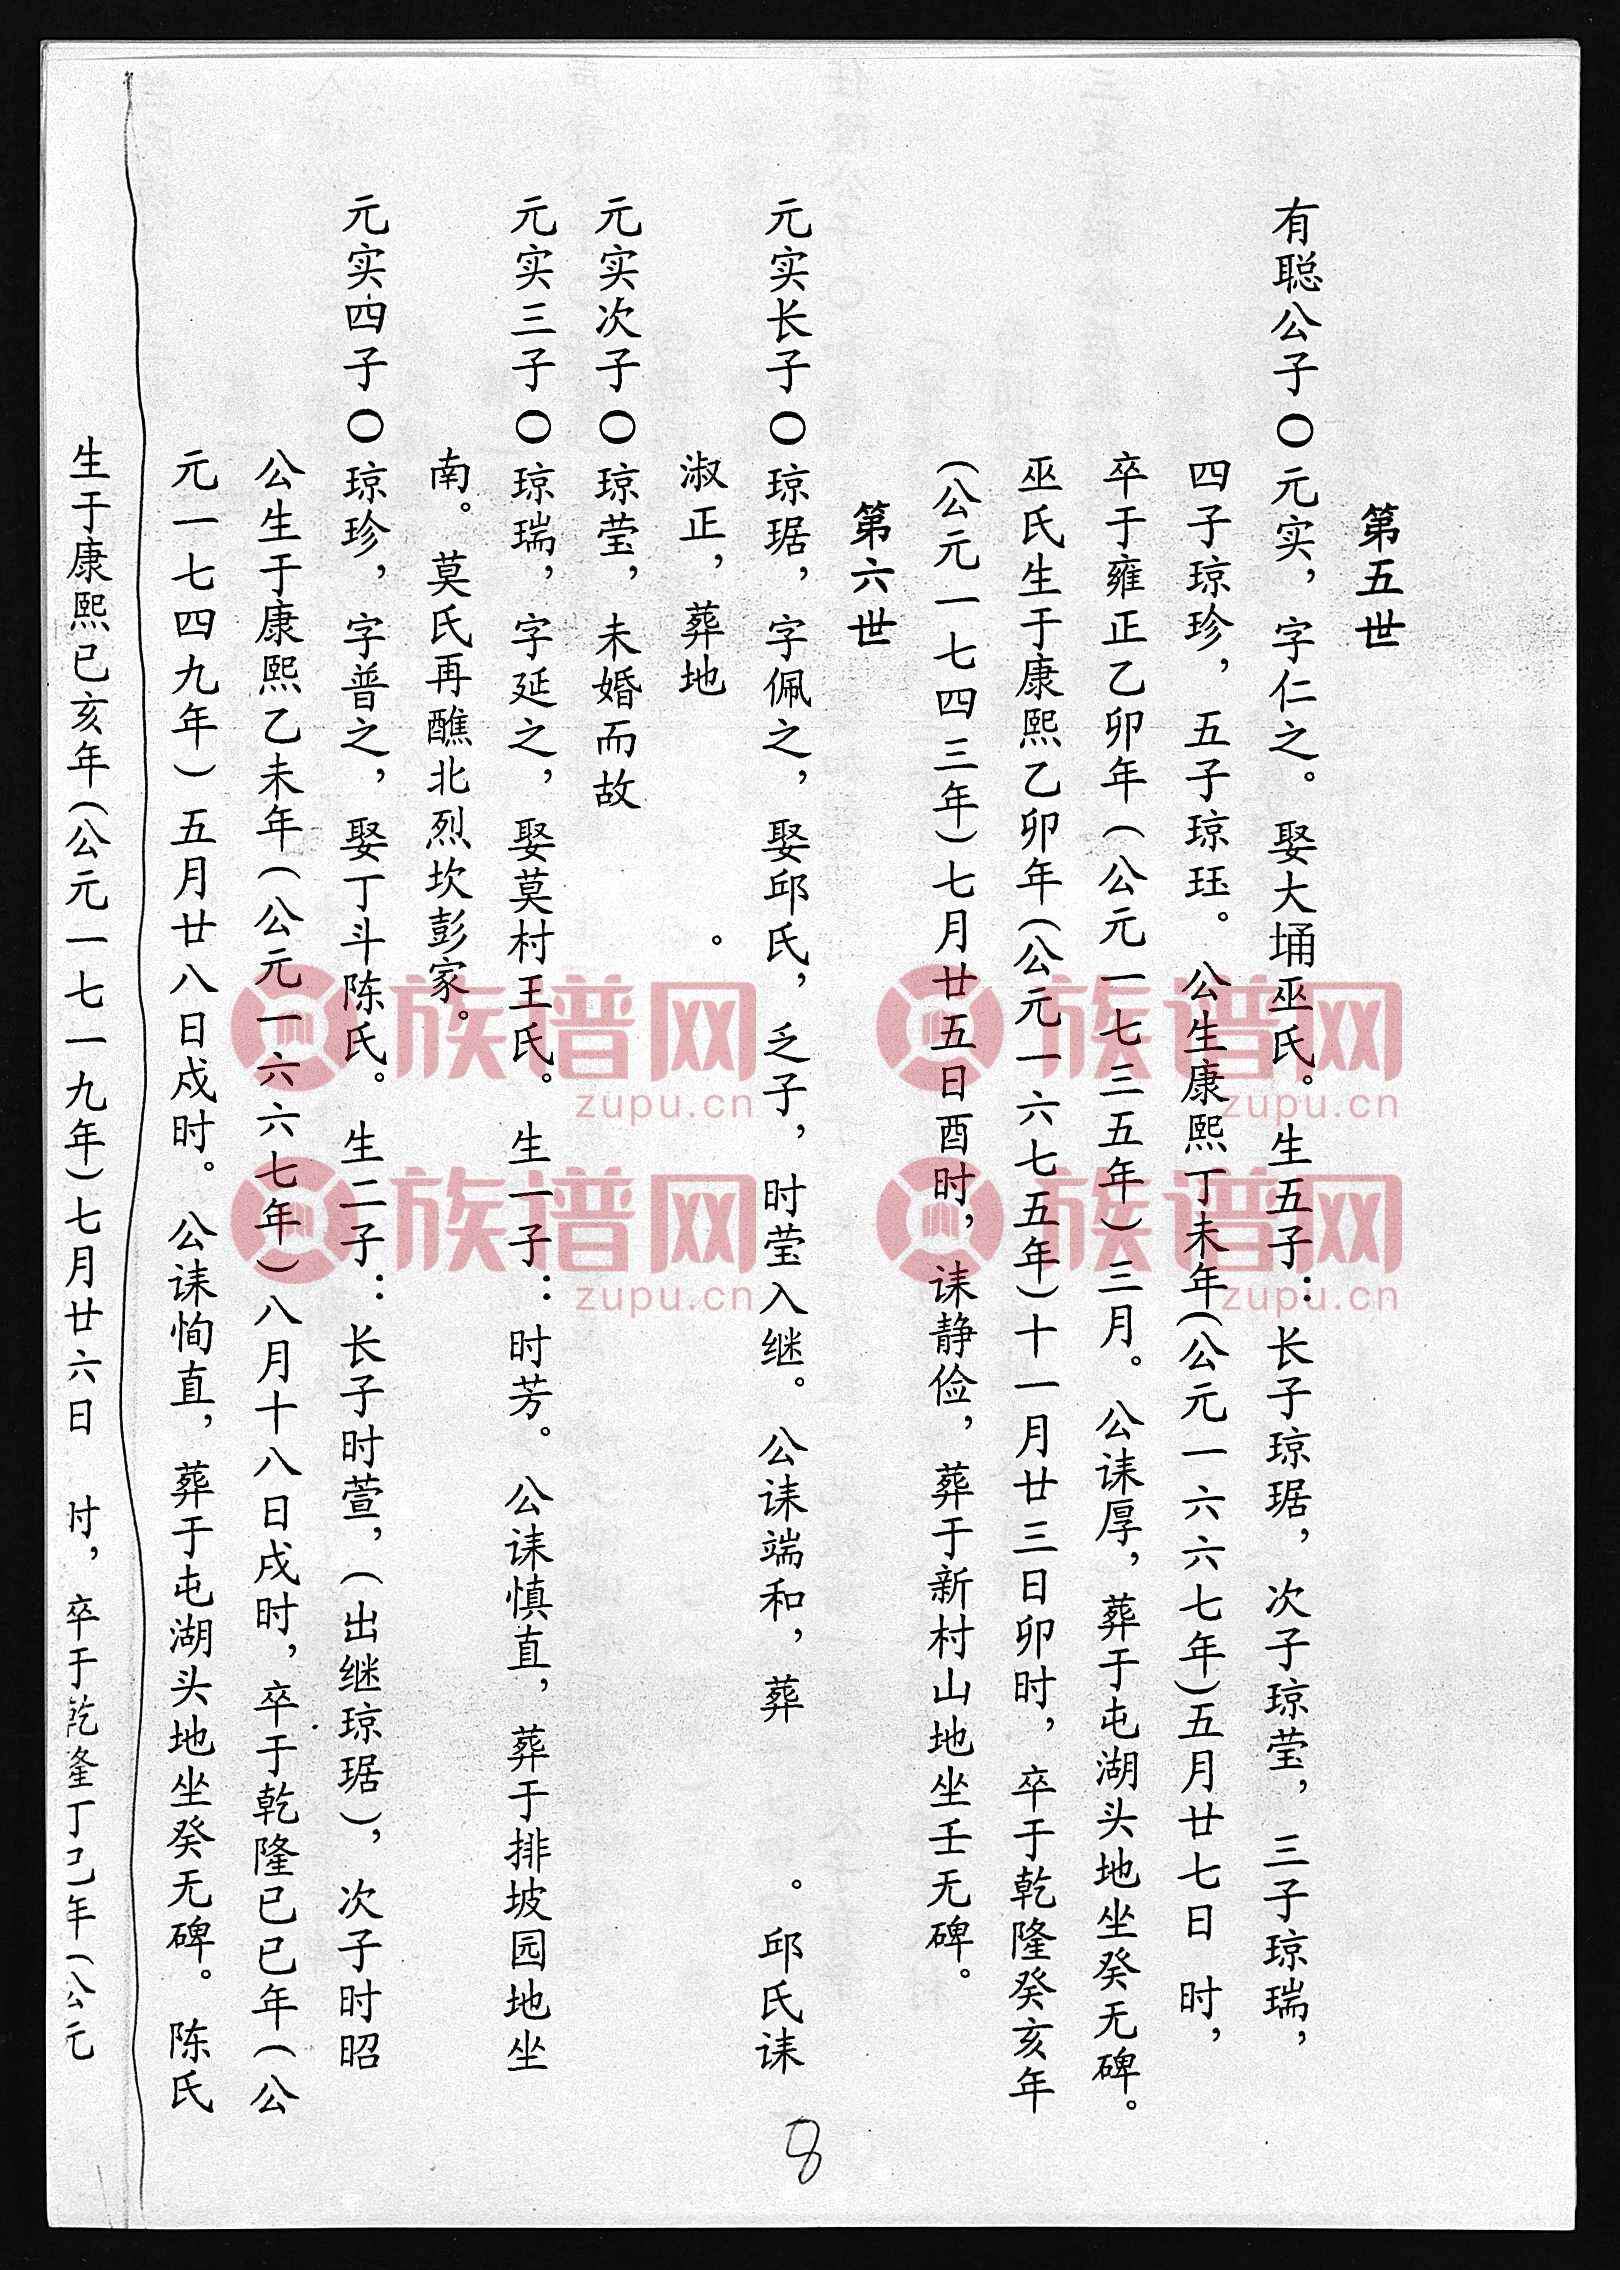 第五世
有聪公子〇元实，字仁之。娶大埇巫氏。生五子：长子琼琚，次子琼莹，三子琼瑞，
四子琼珍，五子琼珏。公生康熙丁未年(公元一六六七年)五月廿七日 时，
卒于雍正乙卯年(公元一七三五年)三月。公诔厚，葬于屯湖头地坐癸无碑。
巫氏生于康熙乙卯年(公元一六七五年)十一月廿三日卯时，卒于乾隆癸亥年
(公元一七四三年)七月廿五日酉时，诔静俭，葬于新村山地坐壬无碑。
第六世
元实长子〇琼琚，字佩之，娶邱氏，乏子，时莹入继。公诔端和，葬 。邱氏诔
淑正，葬地 。
元实次子〇琼莹，未婚而故
元实三子〇琼瑞，字延之，娶莫村王氏。生一子：时芳。公诔慎直，葬于排坡园地坐
南。莫氏再醮北烈坎彭家。
元实四子〇琼珍，字普之，娶丁斗陈氏。生二子：长子时萱，(出继琼琚)，次子时昭
公生于康熙乙未年(公元一六六七年)八月十八日戌时，卒于乾隆已已年(公
元一七四九年)五月廿八日戍时。公诔恂直，葬于屯湖头地坐癸无碑。陈氏
生于康熙已亥年(公元一七一九年)七月廿六日 时，卒于乾隆丁己年(公元
8
族谱网
zupu.cn
族谱网
zupu.cn
族谱网
zupu.cn
族谱网
zupu.cn